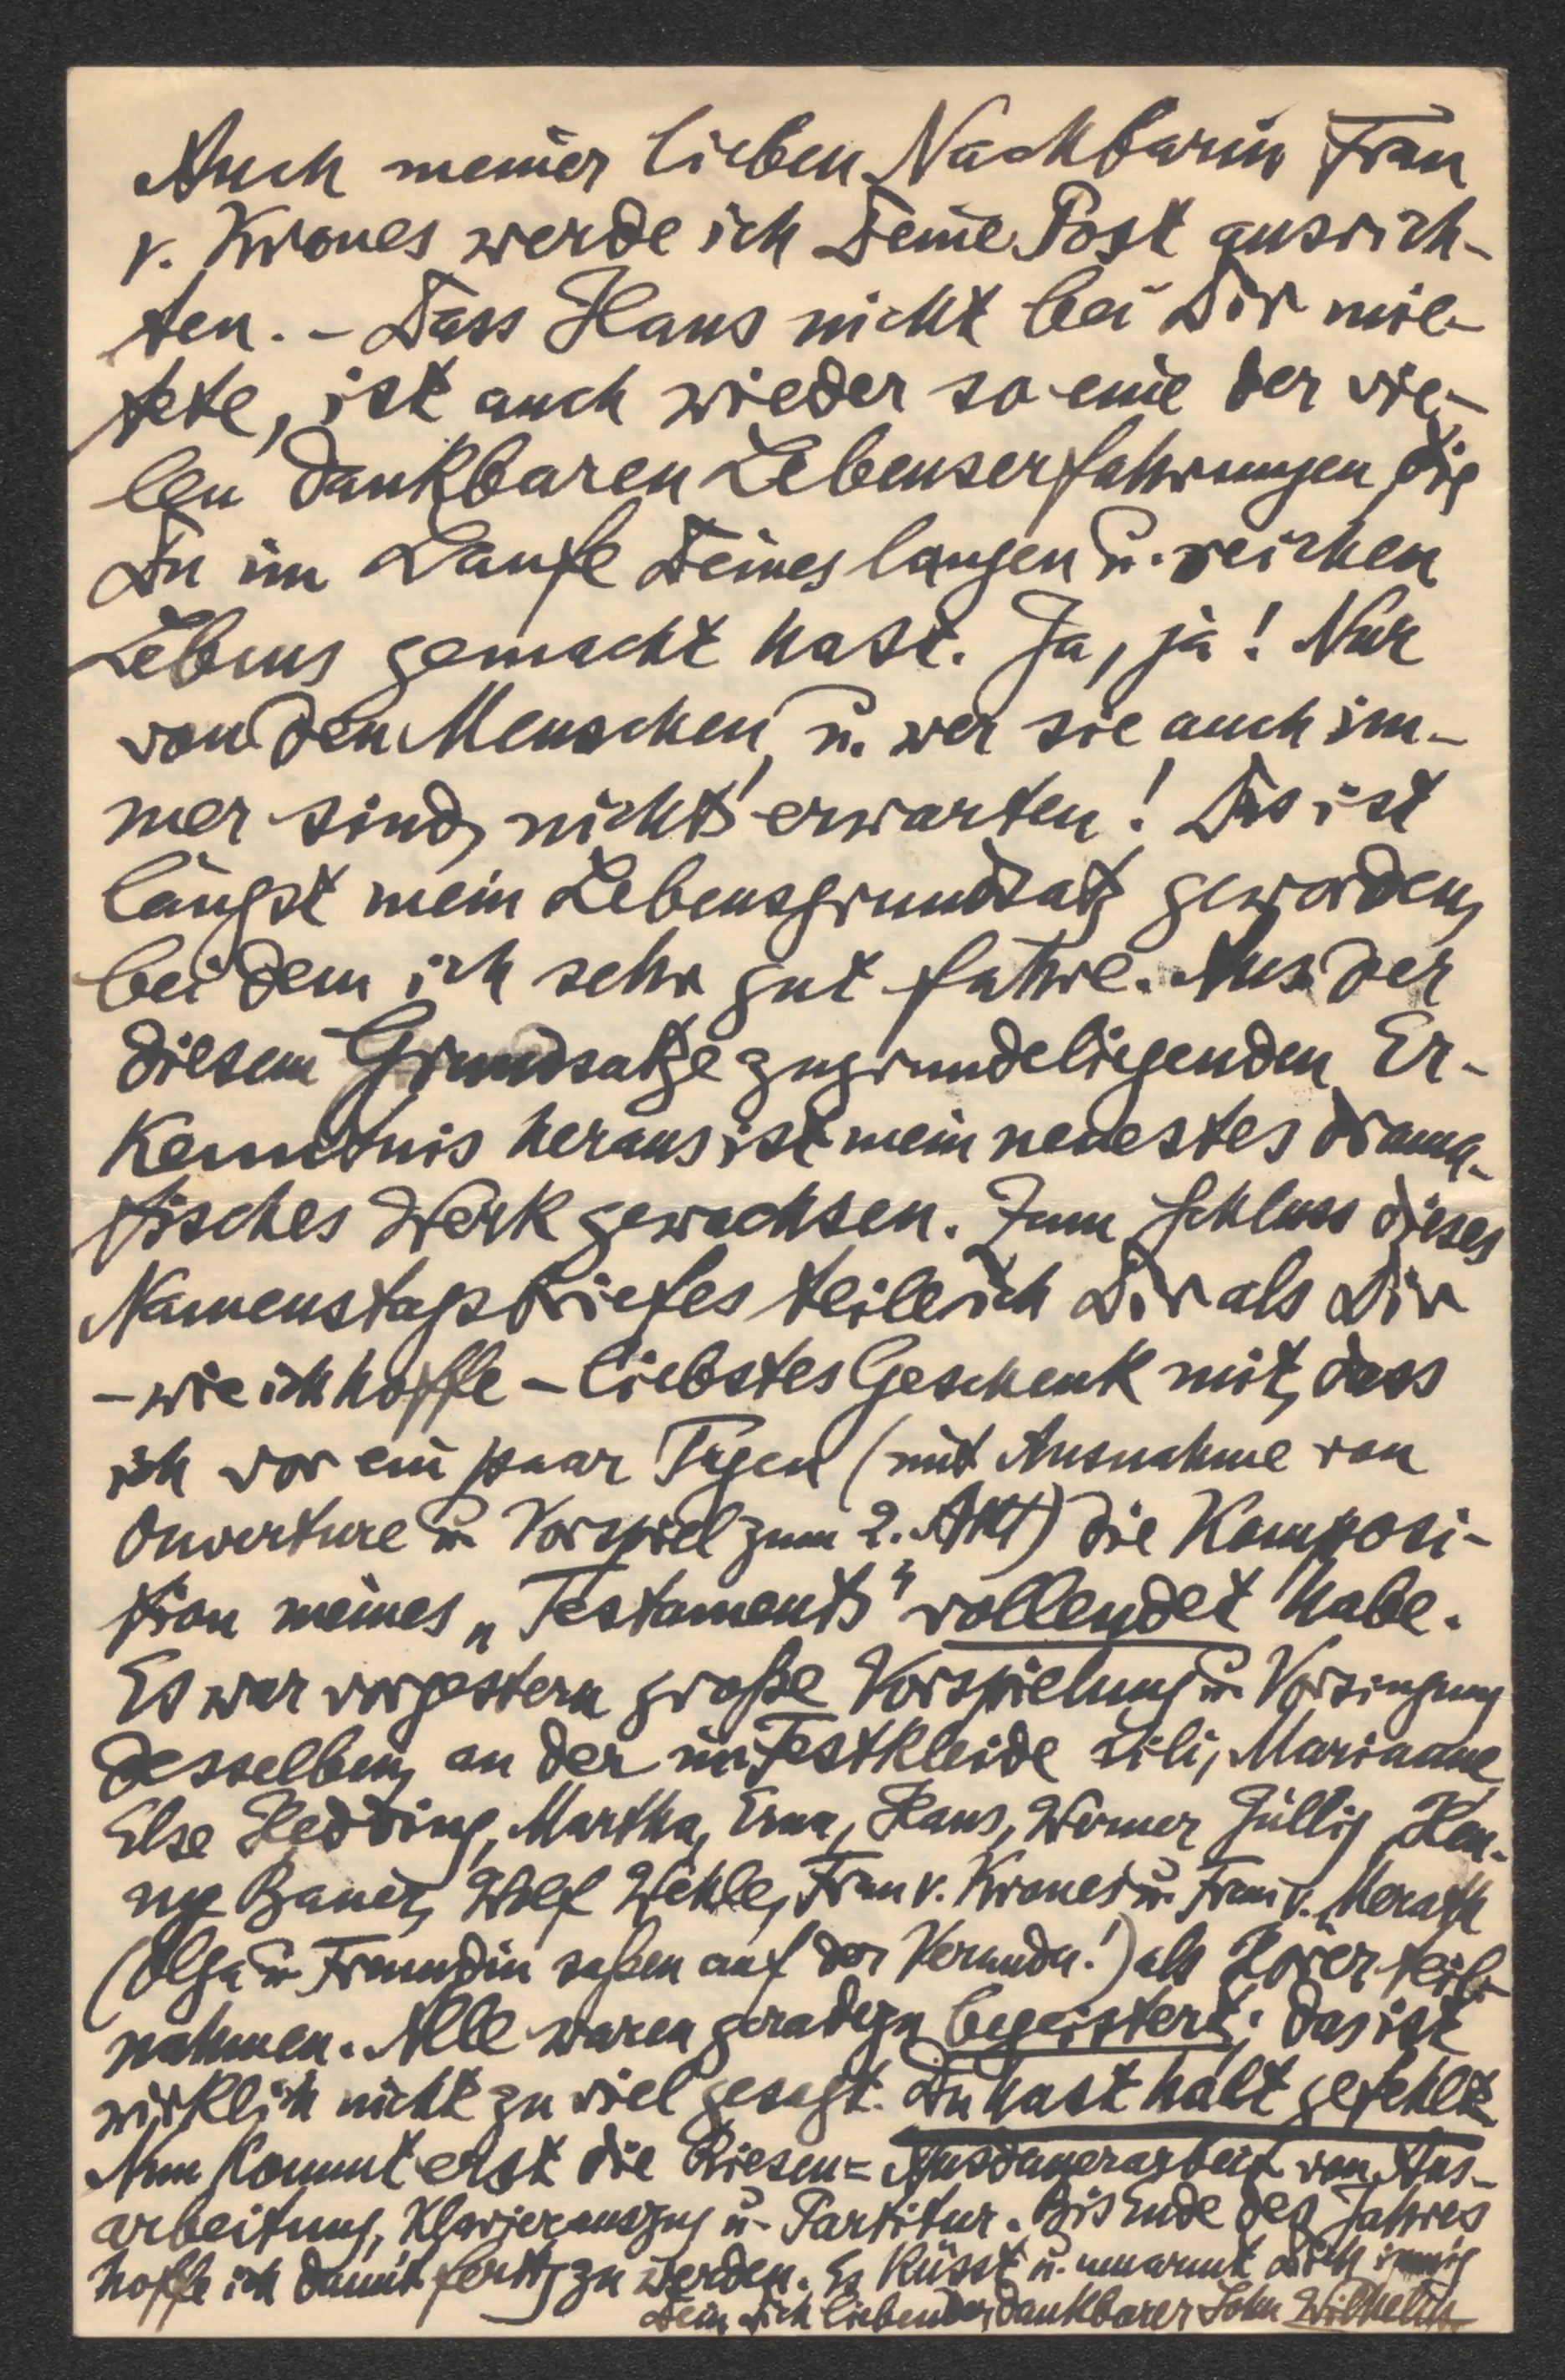 Auch meiner lieben Nachbarin Frau
v. Krones werde ich Deine Post ausrich-
ten. - Dass Hans nicht bei Dir mie-
tete, ist auch wieder so eine der vie-
len dankbaren Lebenserfahrungen, die
Du im Laufe Deines langen u. reichen
Lebens gemacht hast. Ja, ja! Nur
von den Menschen, u. wer sie auch im-
mer sind, nichts erwarten! Das ist
längst mein Lebensgrundsatz geworden,
bei dem ich sehr gut fahre. Aus der
diesem Grundsatze zugrundeliegenden Er-
kenntnis heraus ist mein neuestes drama-
tisches Werk gewachsen. Zum Schluss dieses
Namenstagsbriefes teile ich Dir als Dir
- wie ich hoffe - liebstes Geschenk mit, dass
ich vor ein paar Tagen (mit Ausnahme von
Ouverture u. Vorspiel zum 2. Akt) die Komposi-
tion meines „Testaments" vollendet habe.
Es war vorgestern große Vorspielung u. Vorsingung
desselben, an der im Festkleide Lili, Marianne,
Else Hedding, Martha, Erna, Hans, Werner Züllig, Hen-
ny Bauer, Wolf Wehle, Frau v. Krones u. Frau v.
(Olga u. Freundin saßen auf der Veranda!) als Hörer teil-
nahmen. Alle waren geradezu begeistert; das ist
wirklich nicht zu viel gesagt. Du hast halt gefehlt.
Nun kommt erst die Riesen= Ausdauerarbeit von Aus-
arbeitung, Klavierauszug u. Partitur. Bis Ende des Jahres
hoffe ich damit fertig zu werden. Es küsst u. umarmt Dich innig
Dein Dich liebender, dankbarer Sohn Wilhelm